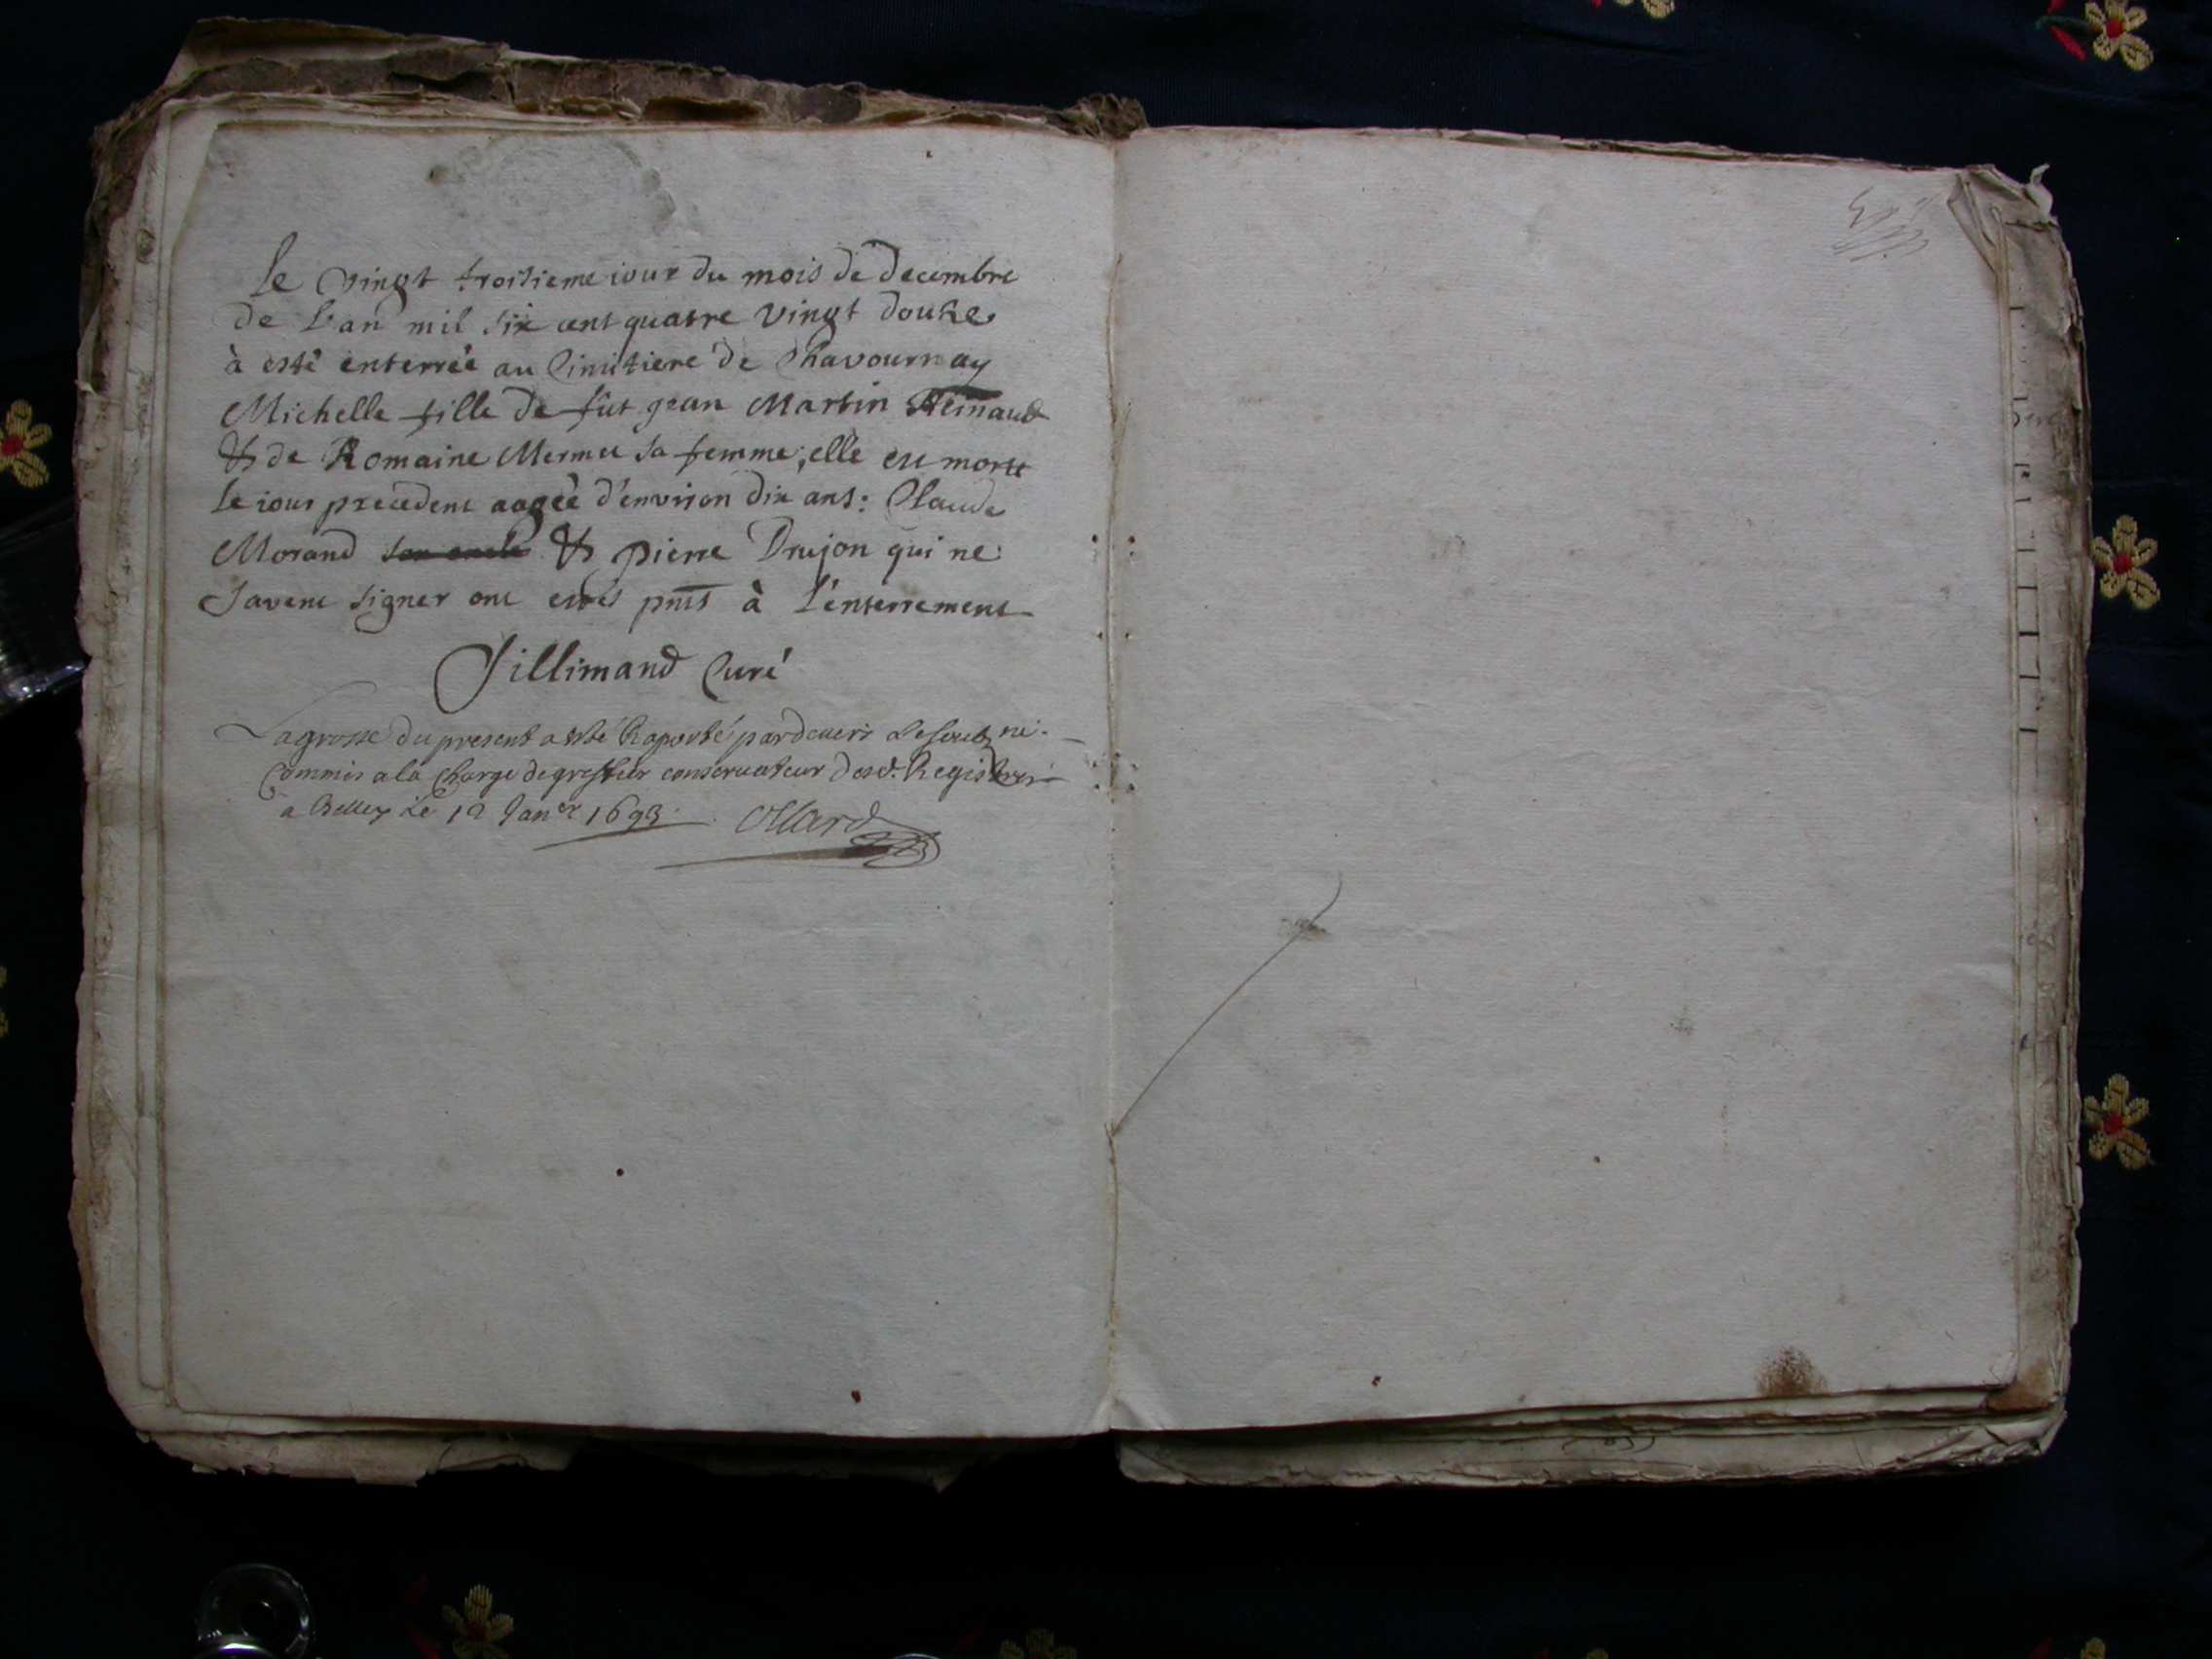 Le vingt troisieme iour du mois de decembre
de L'an mil six cent quatre vingt douze
à esté enterrée au Cimitiere de Chavournay
Michelle fille de fût jean Martin Reinaud
& de Romaine Mermet sa femme, elle est morte
le iour precedent aagée d'environ dix ans: Claude
Morand son oncle & pierre Drujon qui ne
savent signer ont estés pnts à L'enterrement
Jillimand Curé
La grosse du present a esté Raporté pardevers Le soubne
Commis a la Charge de greffier conservateur desd. Registres
a Belley Le 12 Janer 1693. Ollard